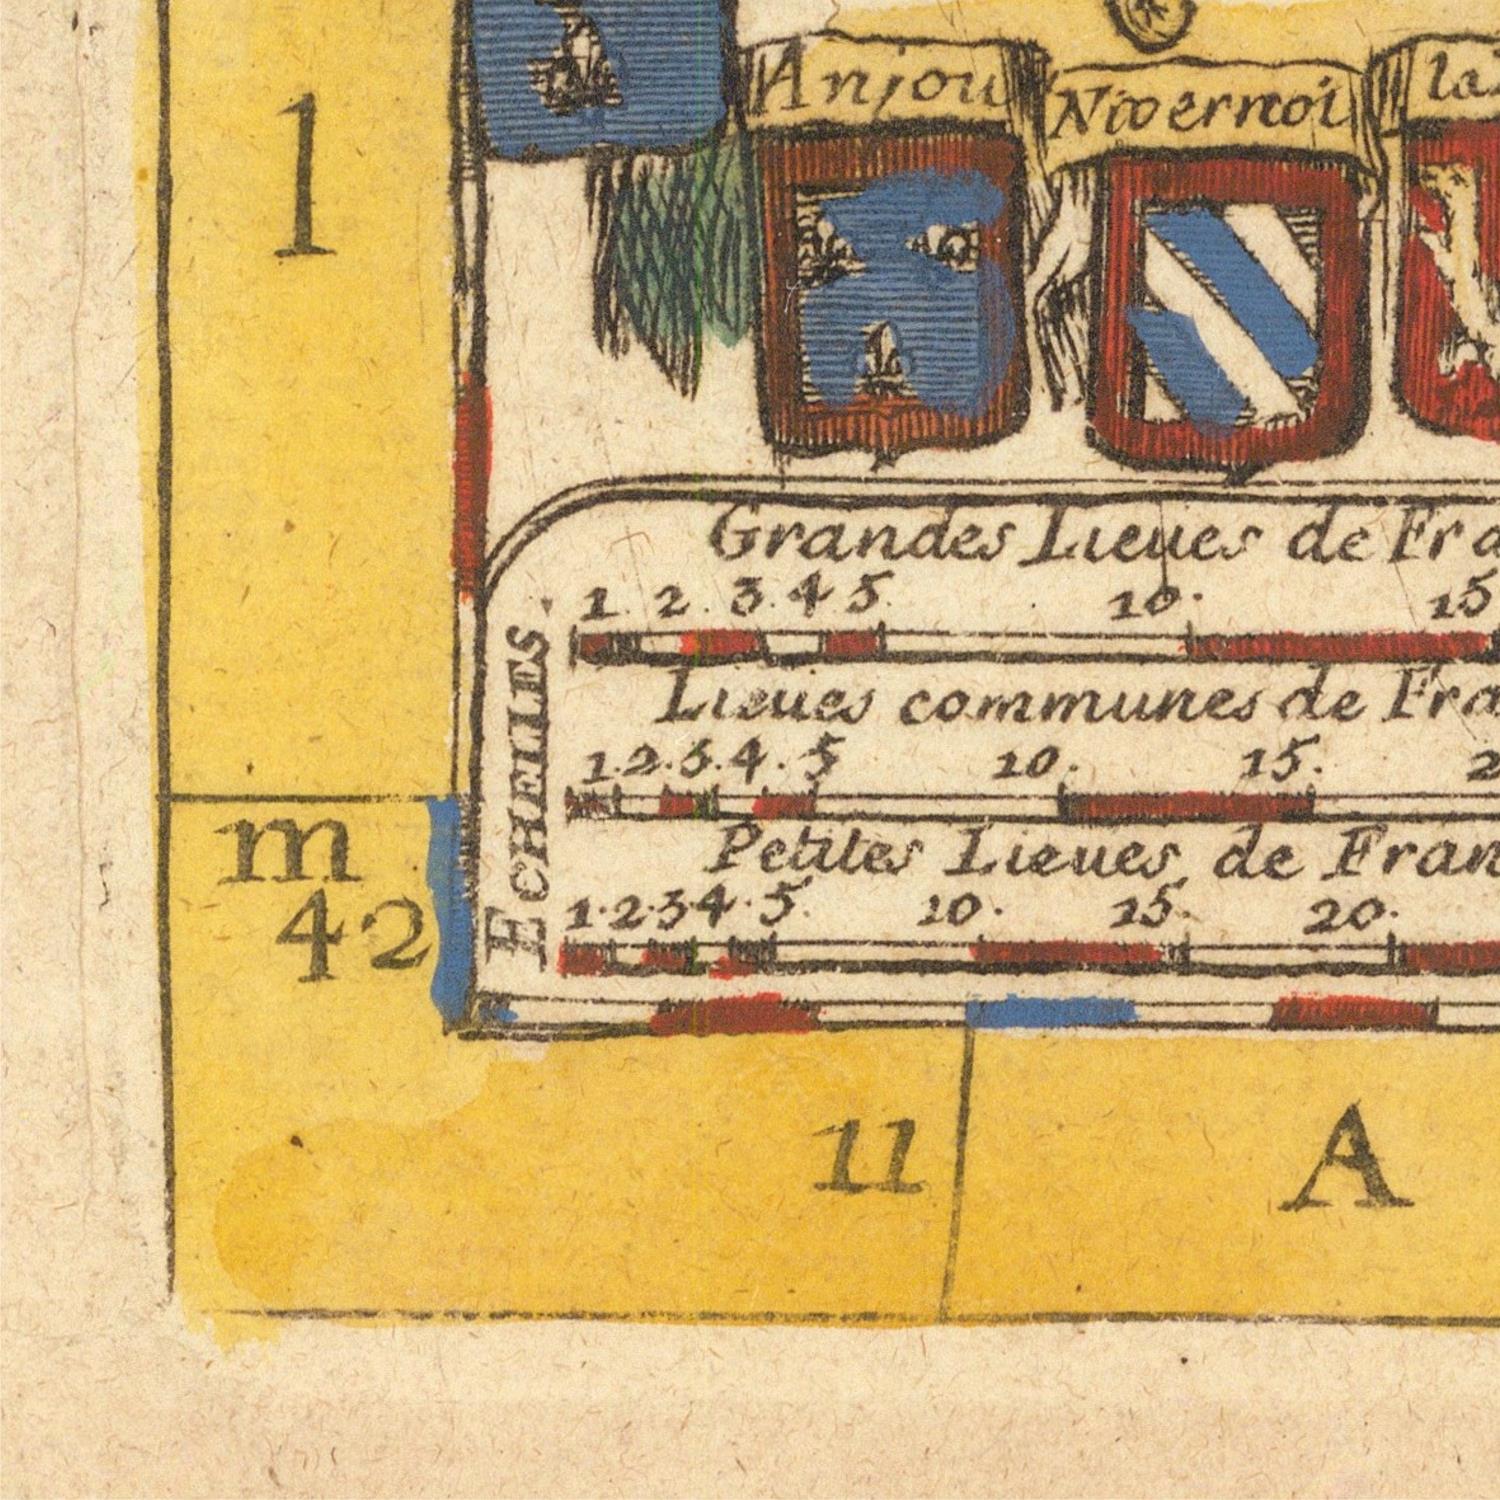 1
Anjou
Nivernoi
Grandes Lieues de Fra
1. 2. 3. 4 5. 10. 15
Lieues communes de Fra
1. 2. 3. 4. 5 10. 15. 2
Petites Lieues de Fran
1. 2. 3 4. 5. 10. 15. 20.
ECHELLES.
m
42
11
A